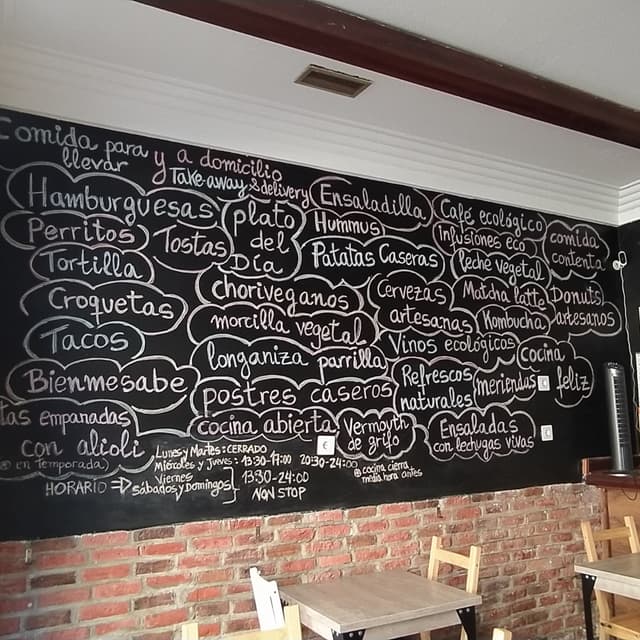 Comida para
llevar
y a domicilio
Take-away & delivery
Hamburguesas
Perritos
Tortilla
Croquetas
Tacos
Bienmesabe
empanadas
con alioli
en temporada)
Tostas
plato
del
Día
choriveganos
morcilla vegetal
longaniza parrilla
postres caseros
cocina abierta
Ensaladilla
Hummus
Patatas Caseras
Cervezas
artesanas
Vinos ecológicos
Refrescos
naturales
Vermouth
de grifo
Café ecológico
infusiones eco
leche vegetal
Matcha latte
Kombucha
meriendas
Ensaladas
con lechugas vivas
comida
contenta
Donuts
artesanos
cocina
feliz
€
HORARIO
Lunes y Martes: CERRADO
Miércoles y Jueves: 13:30-17:00 20:30-24:00
Viernes
Sábados y Domingos
13:30-24:00
NON STOP
cocina cierra
media hora antes